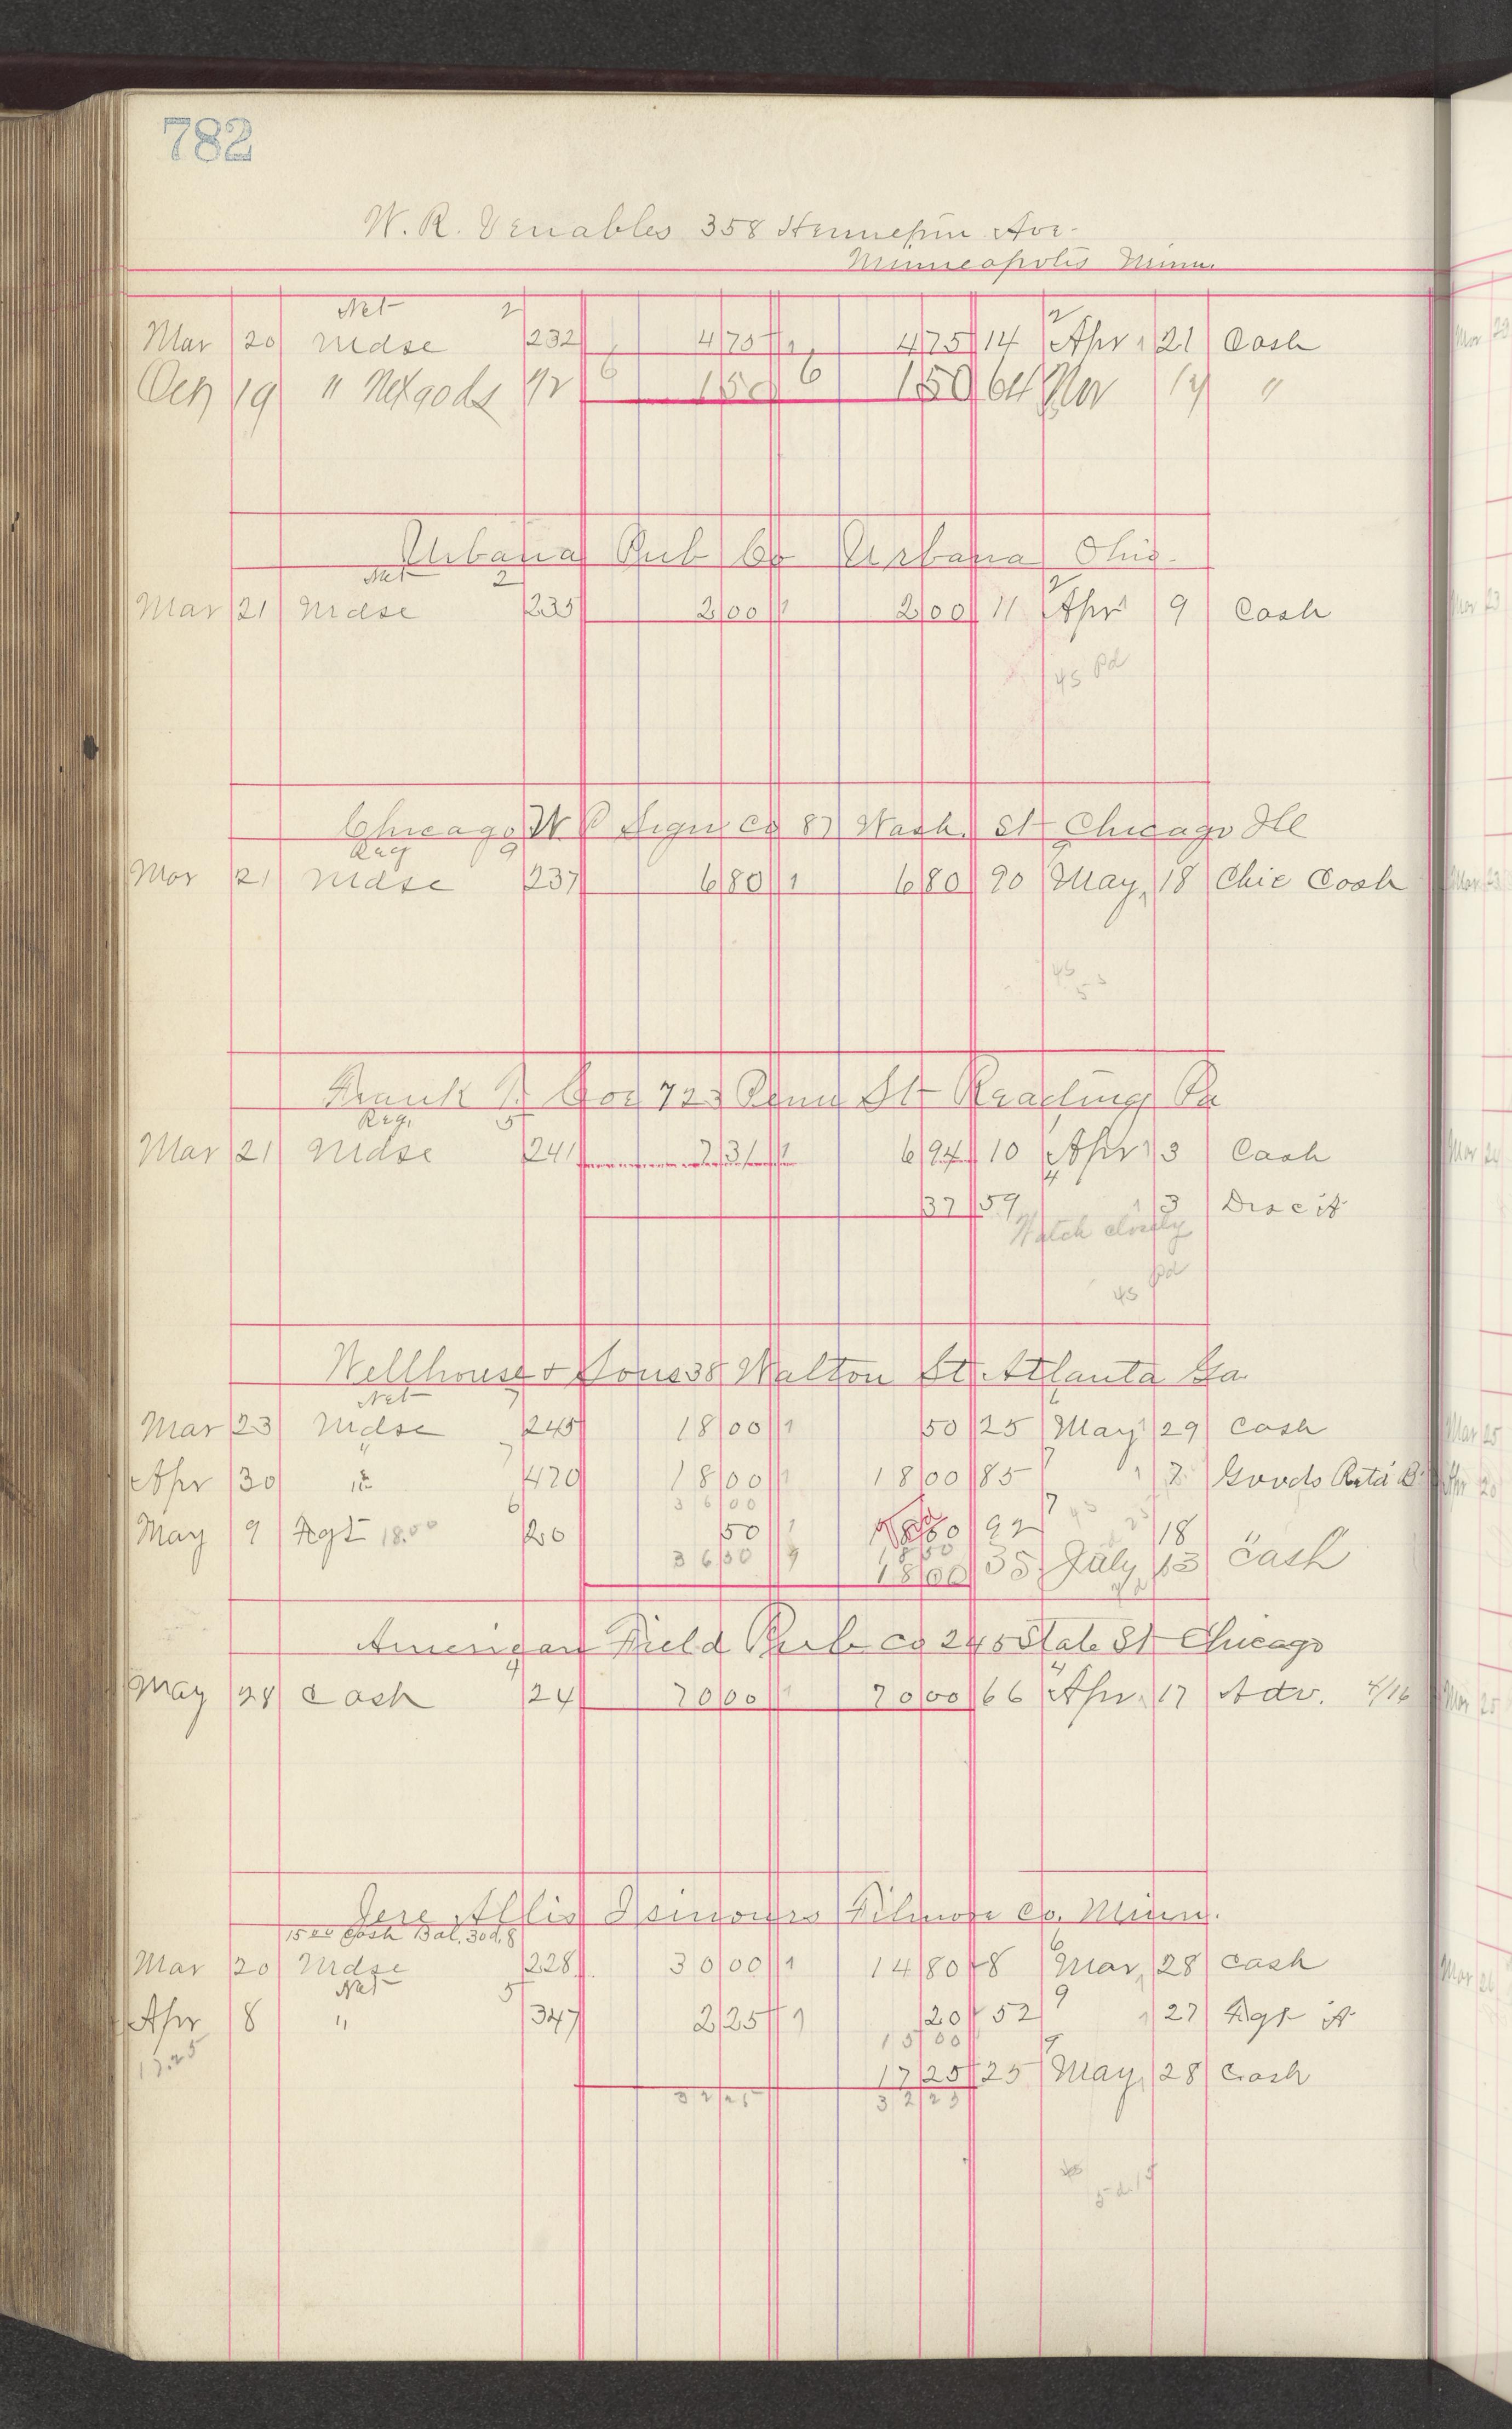 782
W. R. Venables 358 Hennepin Ave.
Minneapolis Minn.
Net 2 2
Mar 20 Mdse 232 4 75 1 4 75 14 Apr 21 Cash
19 " 12 6 1 50 6 1 50 64 Nov 14 "
Urbana Pub Co Urbana Ohio.
Net 2 2
Mar 21 Mdse 235 2 00 1 2 00 11 Apr 9 Cash
45 Pd
Chicago W P Sign Co 87 Wash. St Chicago Ill
Reg 9 9
Mar 21 Mdse 237 6 80 1 6 80 90 May 18 Chic Cash
45
5 3
Frank P. 723 Penn St Reading Pa
Reg. 5
Mar 21 Mdse 241 7 31 1 6 94 10 Apr 3 Cash
4
37 59 3 Disc it
Watch closely
45 Pd
Wellhouse & Sons 38 Walton St Atlanta Ga
Net 7 6
Mar 23 Mdse 245 18 00 1 50 25 May 29 Cash
Apr 30 " 7 470 18 00 1 18 00 85 7 7 Goods Retd
36 00
May 9 Fgt 18.00 6 20 50 1 18 50 92 7 18
36 50 9 18 50
18 00 35 July 13 Cash
American Field Pub Co 245 State St Chicago
4 4
May 28 Cash 24 70 00 1 70 00 66 Apr. 17 Adv. 4/16
Jere Allis Isinours Filmore Co. Minn.
15 00 Cash Bal. 30d. 8 6
Mar 20 Mdse 228 30 00 1 14 80 8 Mar 28 Cash
Net 5 9
Apr 8 " 347 2 25 1 20 52 27 Fgt
15 00
17.25 17 25 25 9 May 28 Cash
32 25 32 25